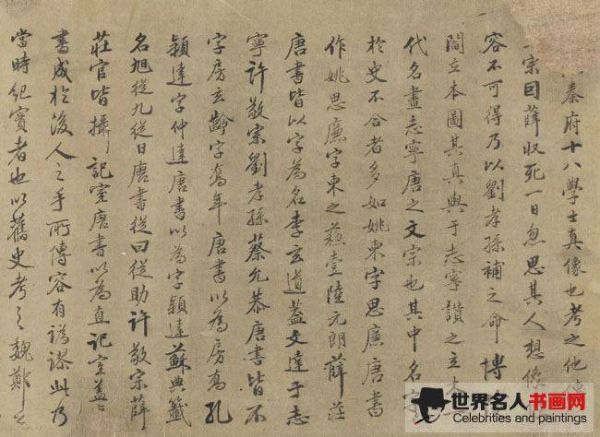 秦府十八學士真像也考之他傳
宗因薛收死一日忽思其人想像
容不可得乃以劉孝孫補之命
閻立本圖其真與于志寧讚之立本
代名畫志寧唐之文宗也其中名字
於史不合者多如姚柬字思廉唐書
作姚思廉字柬之蘇壹陸元朗薛莊
唐書皆以字為名李玄道蓋文達于志
寧許敬宗劉孝孫蔡允恭唐書皆不
字房玄齡字喬年唐書以為房喬孔
穎達字仲達唐書以為字穎達蘇典籤
名旭從九從日唐書從曰從助許敬宗薛
莊官皆攝記室唐書以為直記室蓋
書成於後人之手所傳容有譌謬此乃
當時紀實者也以舊史考之魏鄭公
世界名人书画网
Celebrities and paintings